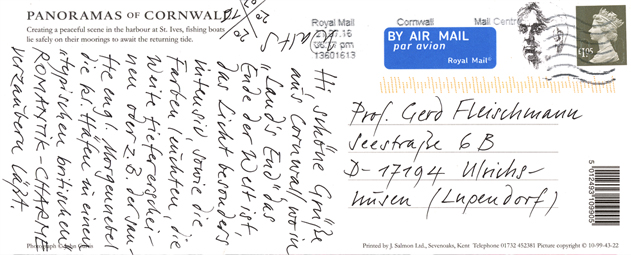 PANORAMAS OF CORNWALL
Creating a peaceful scene in the harbour at St. Ives, fishing boats
lie safely on their moorings to await the returning tide.
Hi, schöne Grüße
aus Cornwall, wo in
"Land's End" das
Ende der Welt ist
das Licht besonders
intensiv sowie die
Farben leuchten, die
Weite tiefer erschei-
nen oder z.B. der san-
fte engl. Morgennebel
die k. Häfen in einen
"typischen britischen
ROMANTIK-CHARME
verzaubern läßt.
Royal Mail Cornwall Mail Centre
pm
13601613
BY AIR MAIL
par avion
Royal Mail
£1.05
Prof. Gerd Fleischmann
Seestraße 6 B
D-17194 Ulrichs-
husen (Lupendorf)
5 012493 109905
Printed by J. Salmon Ltd., Sevenoaks, Kent Telephone 01732 452381 Picture copyright © 10-99-43-22